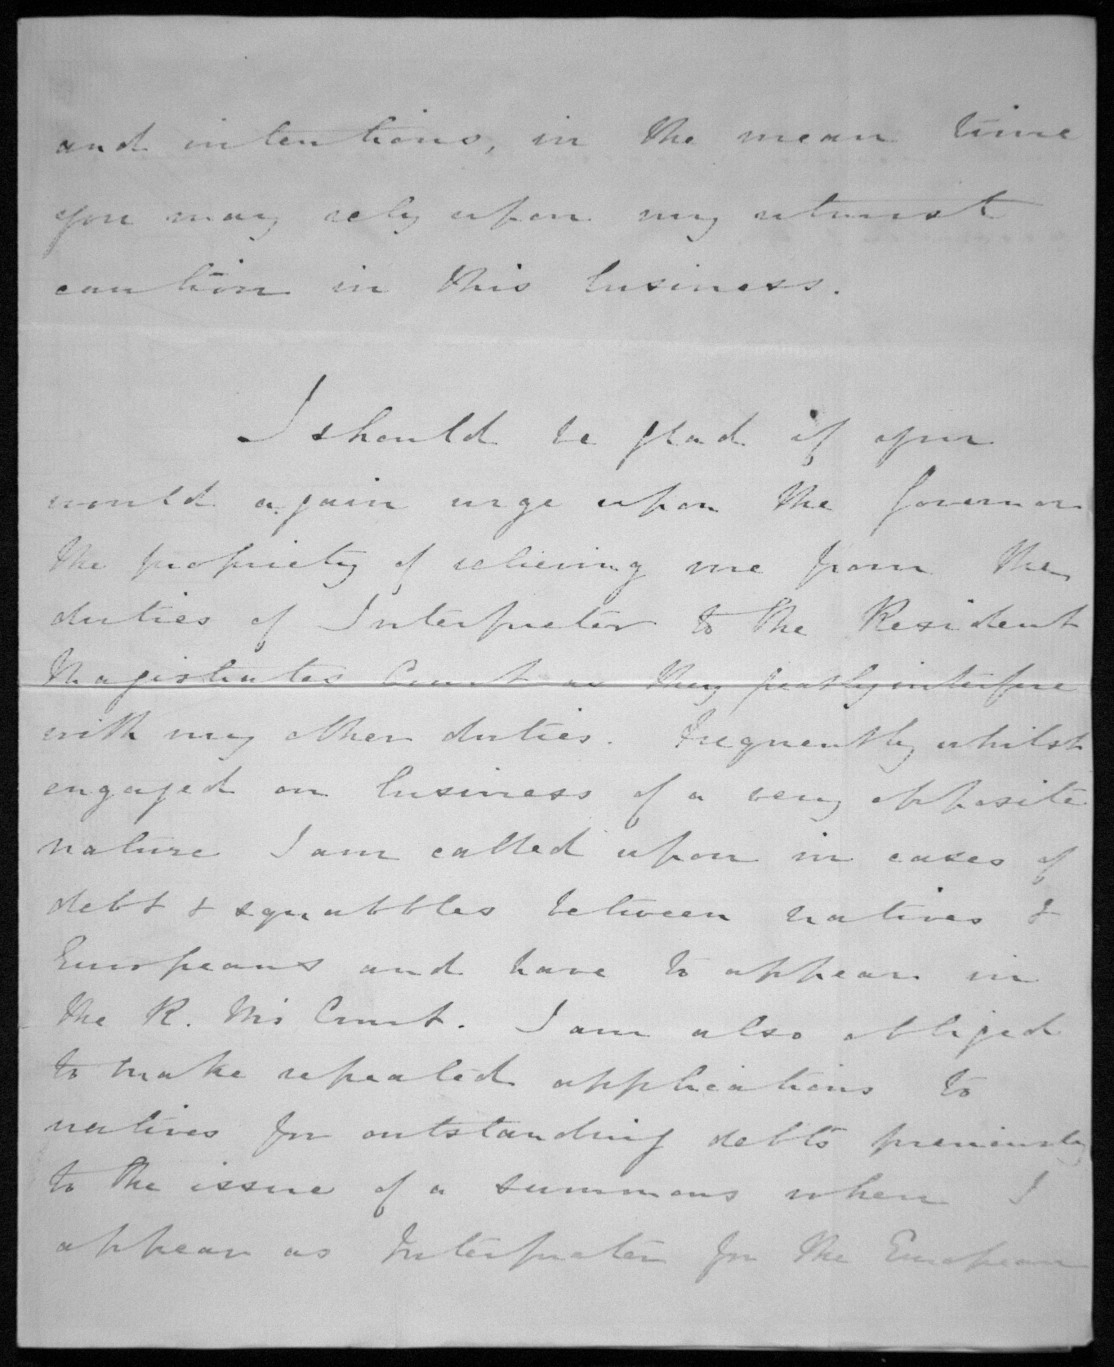 and intentions, in the mean time
you may rely upon my utmost
caution in this business.
I should be glad if you
would again urge upon the Governor
the propriety of relieving me from the
duties of Interpreter to the Resident
Magistrates Court as they greatly interfere
with my other duties. Frequently whilst
engaged on business of a very opposite
nature I am called upon in cases of
debt & squabbles between natives &
Europeans and have to appear in
the R. M's Court. I am also obliged
to make repeated applications to
natives for outstanding debts previously
to the issue of a summons when I
appear as Interpreter for the European